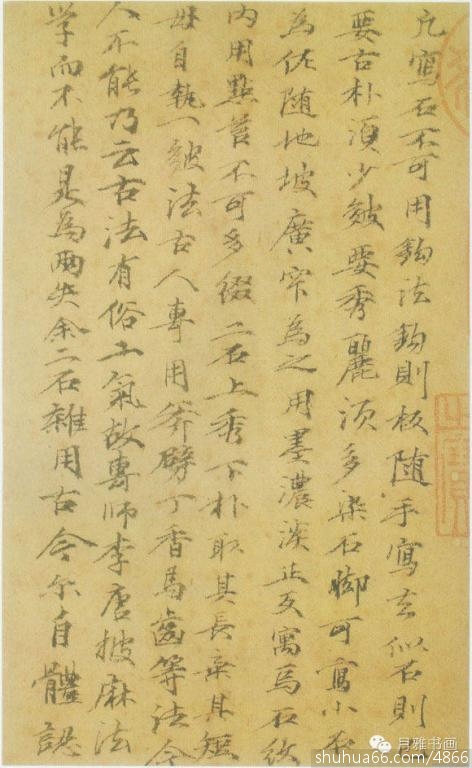 凡寫石不可用鈎法鈎則板随手寫去似石則
要古朴須少皴要秀麗須多染石脚可寫小石
為佐随地坡廣窄為之用墨濃淡正反寓焉石紋
内用點苔不可多綴二石上秀下朴取其長棄其短
毋自執一皴法古人專用斧劈丁香馬齒等法今
人不能乃云古法有俗工氣故專師李唐披麻法
学而不能是為兩失余二石雜用古今尔自體認
月雅书画
shuhua66.com/4866